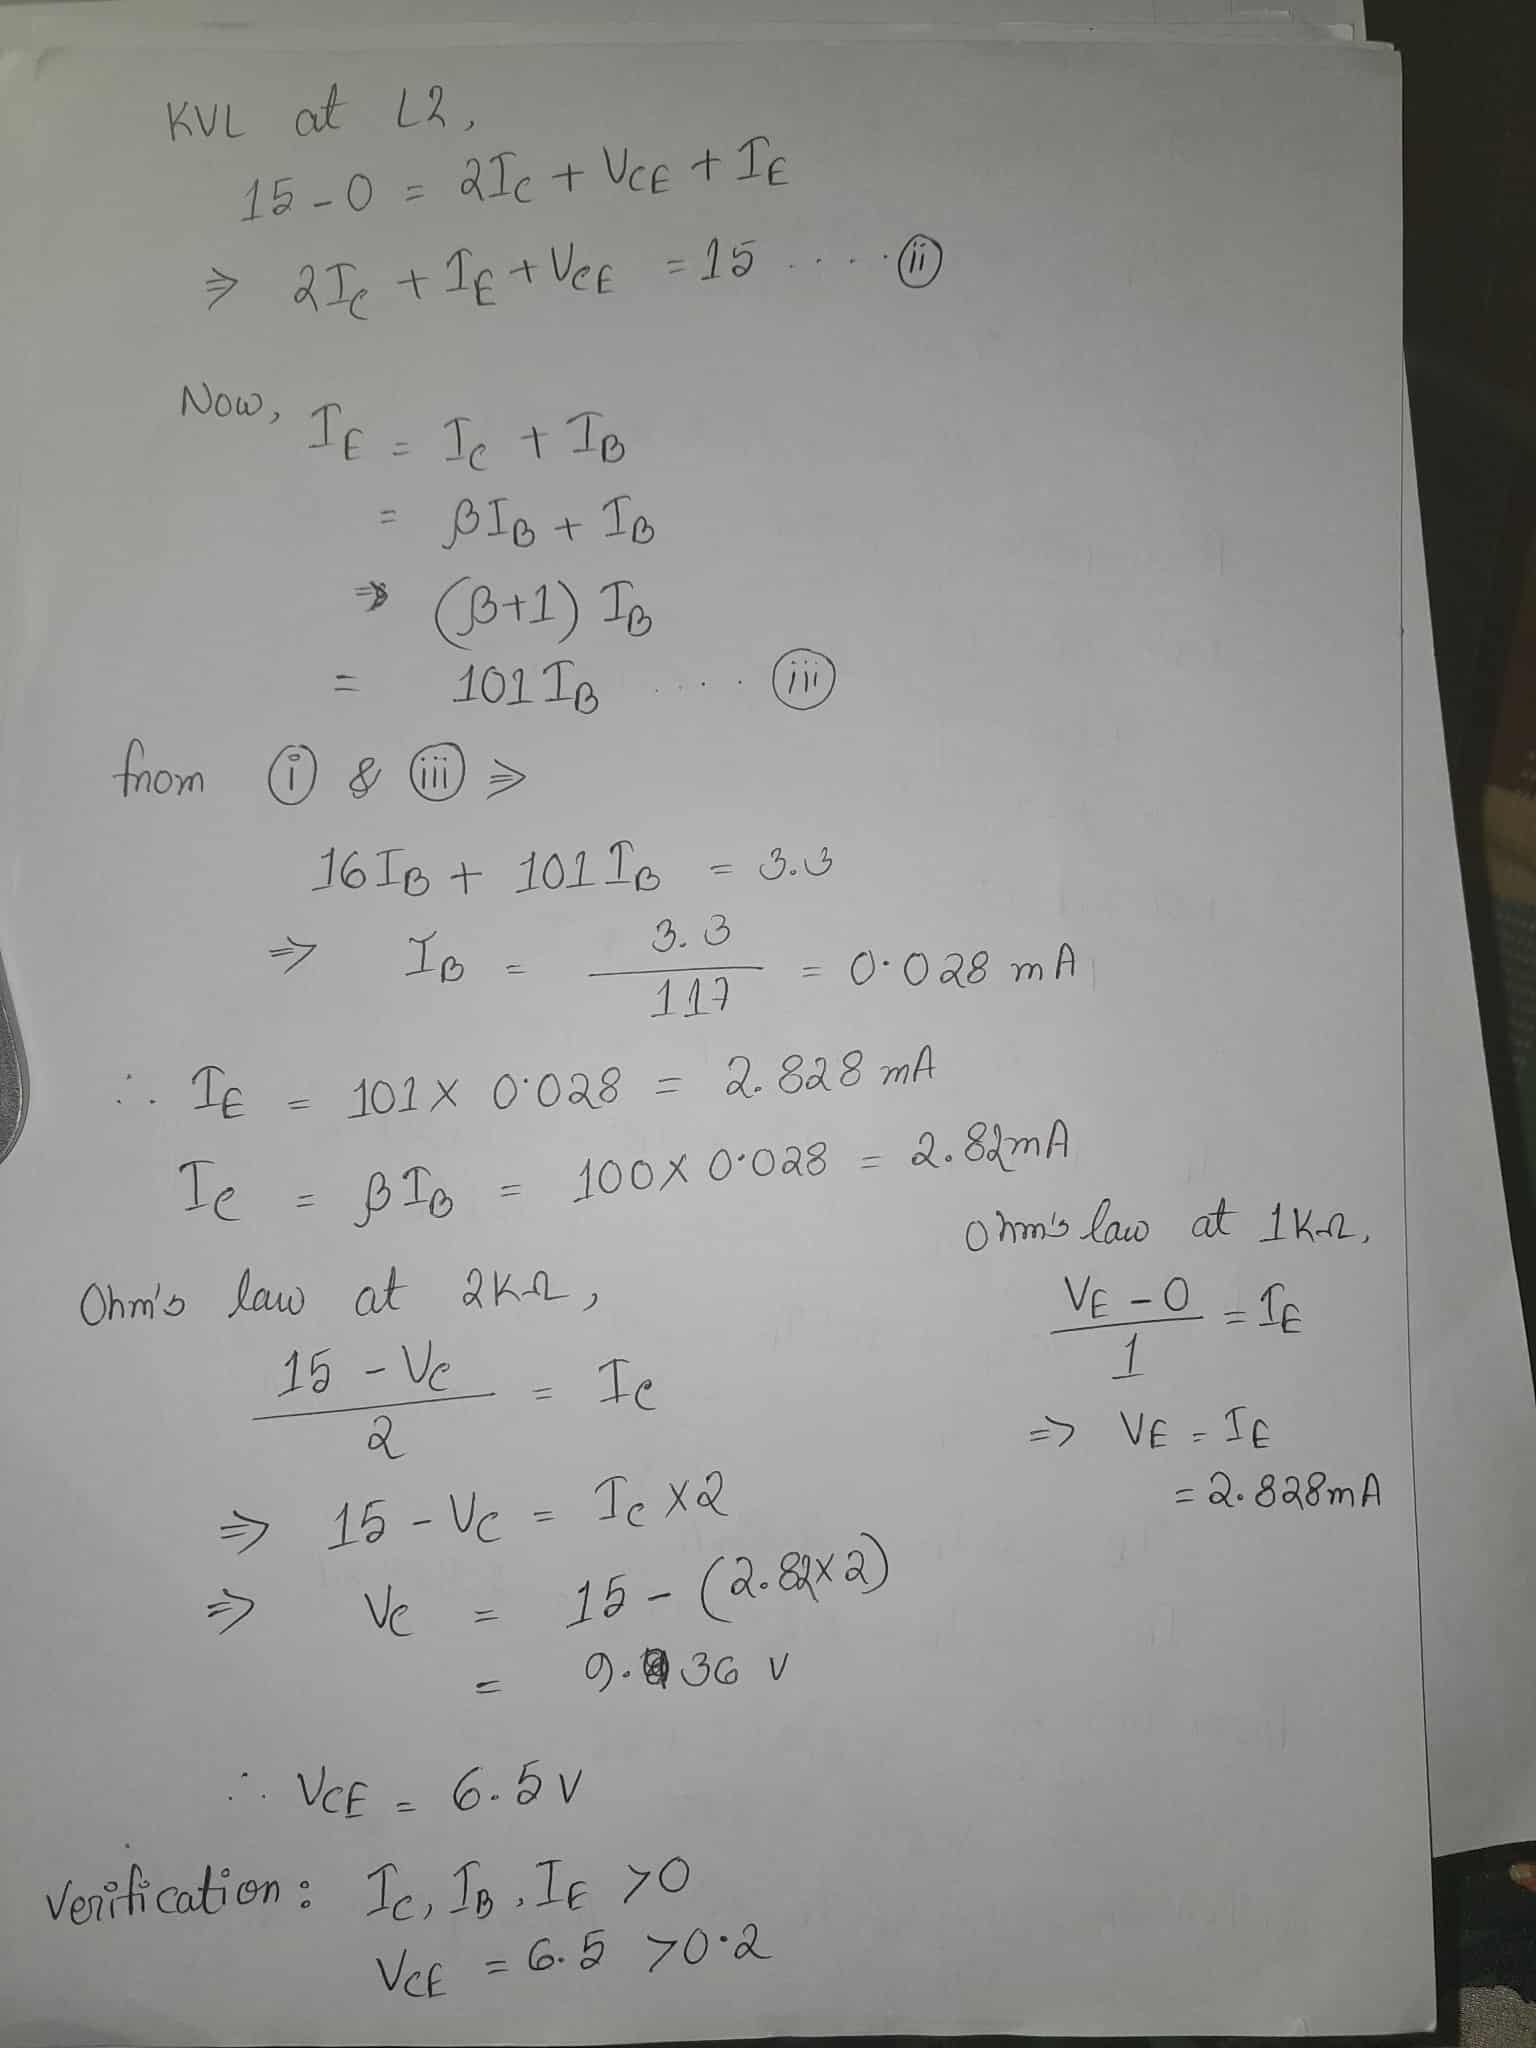 KVL at L2,
15 - 0 = 2IC + VCE + IE
⇒ 2IC + IE + VCE = 15 .... (ii)
Now, IE = IC + IB
= βIB + IB
⇒ (β+1) IB
= 101 IB .... (iii)
from (i) & (iii) ⇒
16 IB + 101 IB = 3.3
⇒ IB = 3.3 / 117 = 0.028 mA
∴ IE = 101 X 0.028 = 2.828 mA
IC = βIB = 100 X 0.028 = 2.82mA
Ohm's law at 2KΩ,
(15 - VC) / 2 = IC
⇒ 15 - VC = IC X 2
⇒ VC = 15 - (2.82X2)
= 9.36 V
Ohm's law at 1KΩ,
(VE - 0) / 1 = IE
=> VE = IE
= 2.828mA
∴ VCE = 6.5 V
Verification: IC, IB, IE >0
VCE = 6.5 >0.2